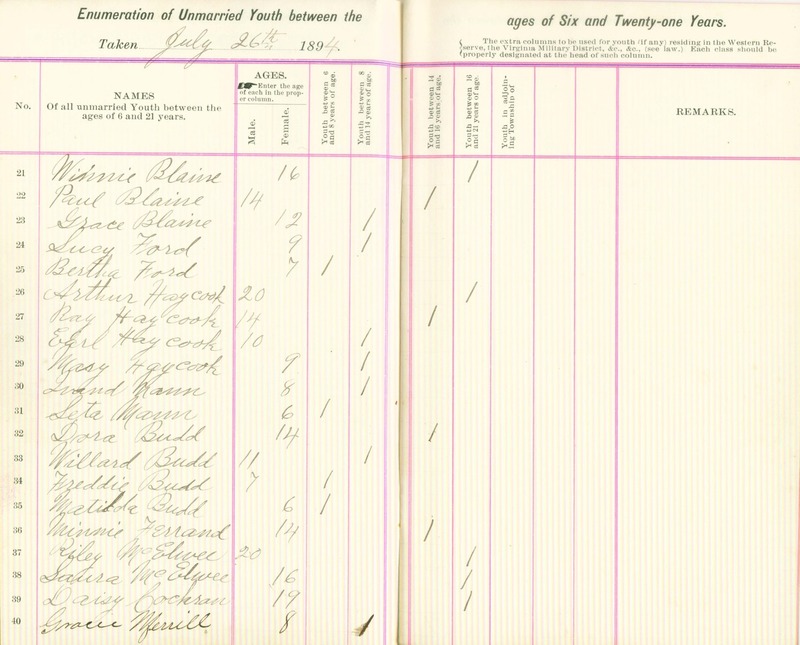 Enumeration of Unmarried Youth between the ages of Six and Twenty-one Years.
Taken July 26th 1894.
The extra columns to be used for youth (if any) residing in the Western Re-
serve, the Virginia Military District, &c., &c., (see law.) Each class should be
properly designated at the head of such column.
No.
NAMES
Of all unmarried Youth between the
ages of 6 and 21 years.
AGES.
Enter the age
of each in the prop-
er column.
Male.
Female.
Youth between 6
and 8 years of age.
Youth between 8
and 14 years of age.
Youth between 14
and 16 years of age.
Youth between 16
and 21 years of age.
Youth in adjoin-
ing Township of
REMARKS.
21 Winnie Blaine 16 /
22 Paul Blaine 14 /
23 Grace Blaine 12 /
24 Lucy Ford 9 /
25 Bertha Ford 7 /
26 Arthur Haycook 20 /
27 Ray Haycook 14 /
28 Earl Haycook 10 /
29 Mary Haycook 9 /
30 Mann 8 /
31 Leta Mann 6 /
32 Dora Budd 14 /
33 Willard Budd 11 /
34 Freddie Budd 7 /
35 Matilda Budd 6 /
36 Minnie Ferrand 14 /
37 Riley McElwee 20 /
38 Laura McElwee 16 /
39 Daisy Cochran 19 /
40 Gracie Merrill 8 /